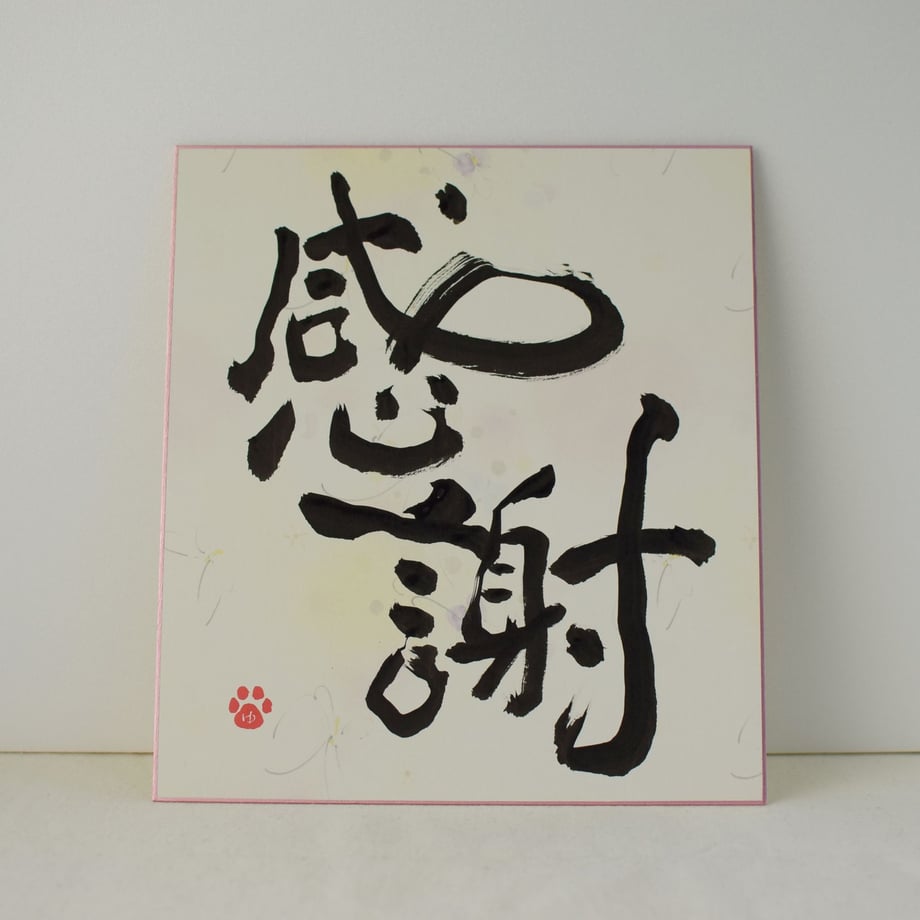 感謝
ゆ